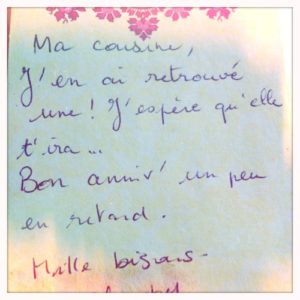 Ma cousine,
J'en ai retrouvé
une ! J'espère qu'elle
t'ira...
Bon anniv' un peu
en retard.
Mille bisous.